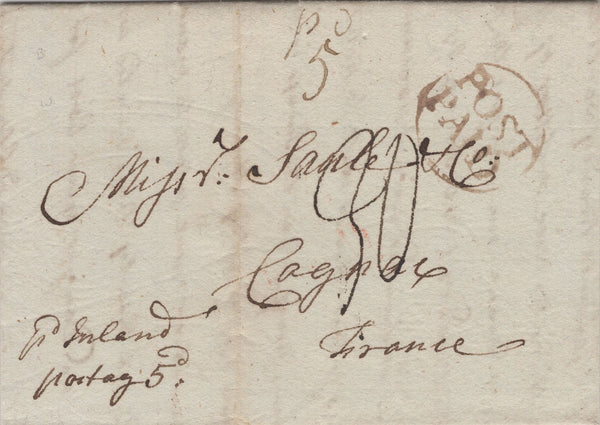 pd
5
POST
PAID
Messrs. Saule & Co:
30
Cognac
France
pd Inland
postag 5d.